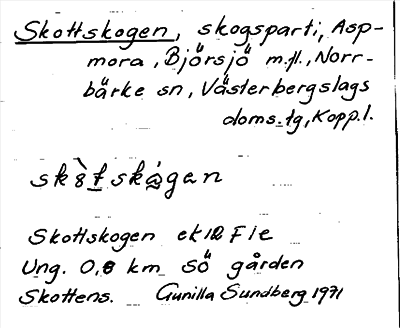 Skottskogen, skogsparti, Asp-
mora, Björsjö m.fl., Norr-
bärke sn, Västerbergslags
doms.tg, Kopp.l.
Skottskogen ek 12 F 1e
Ung. 0,8 km SÖ gården
Skottens. Gunilla Sundberg 1971